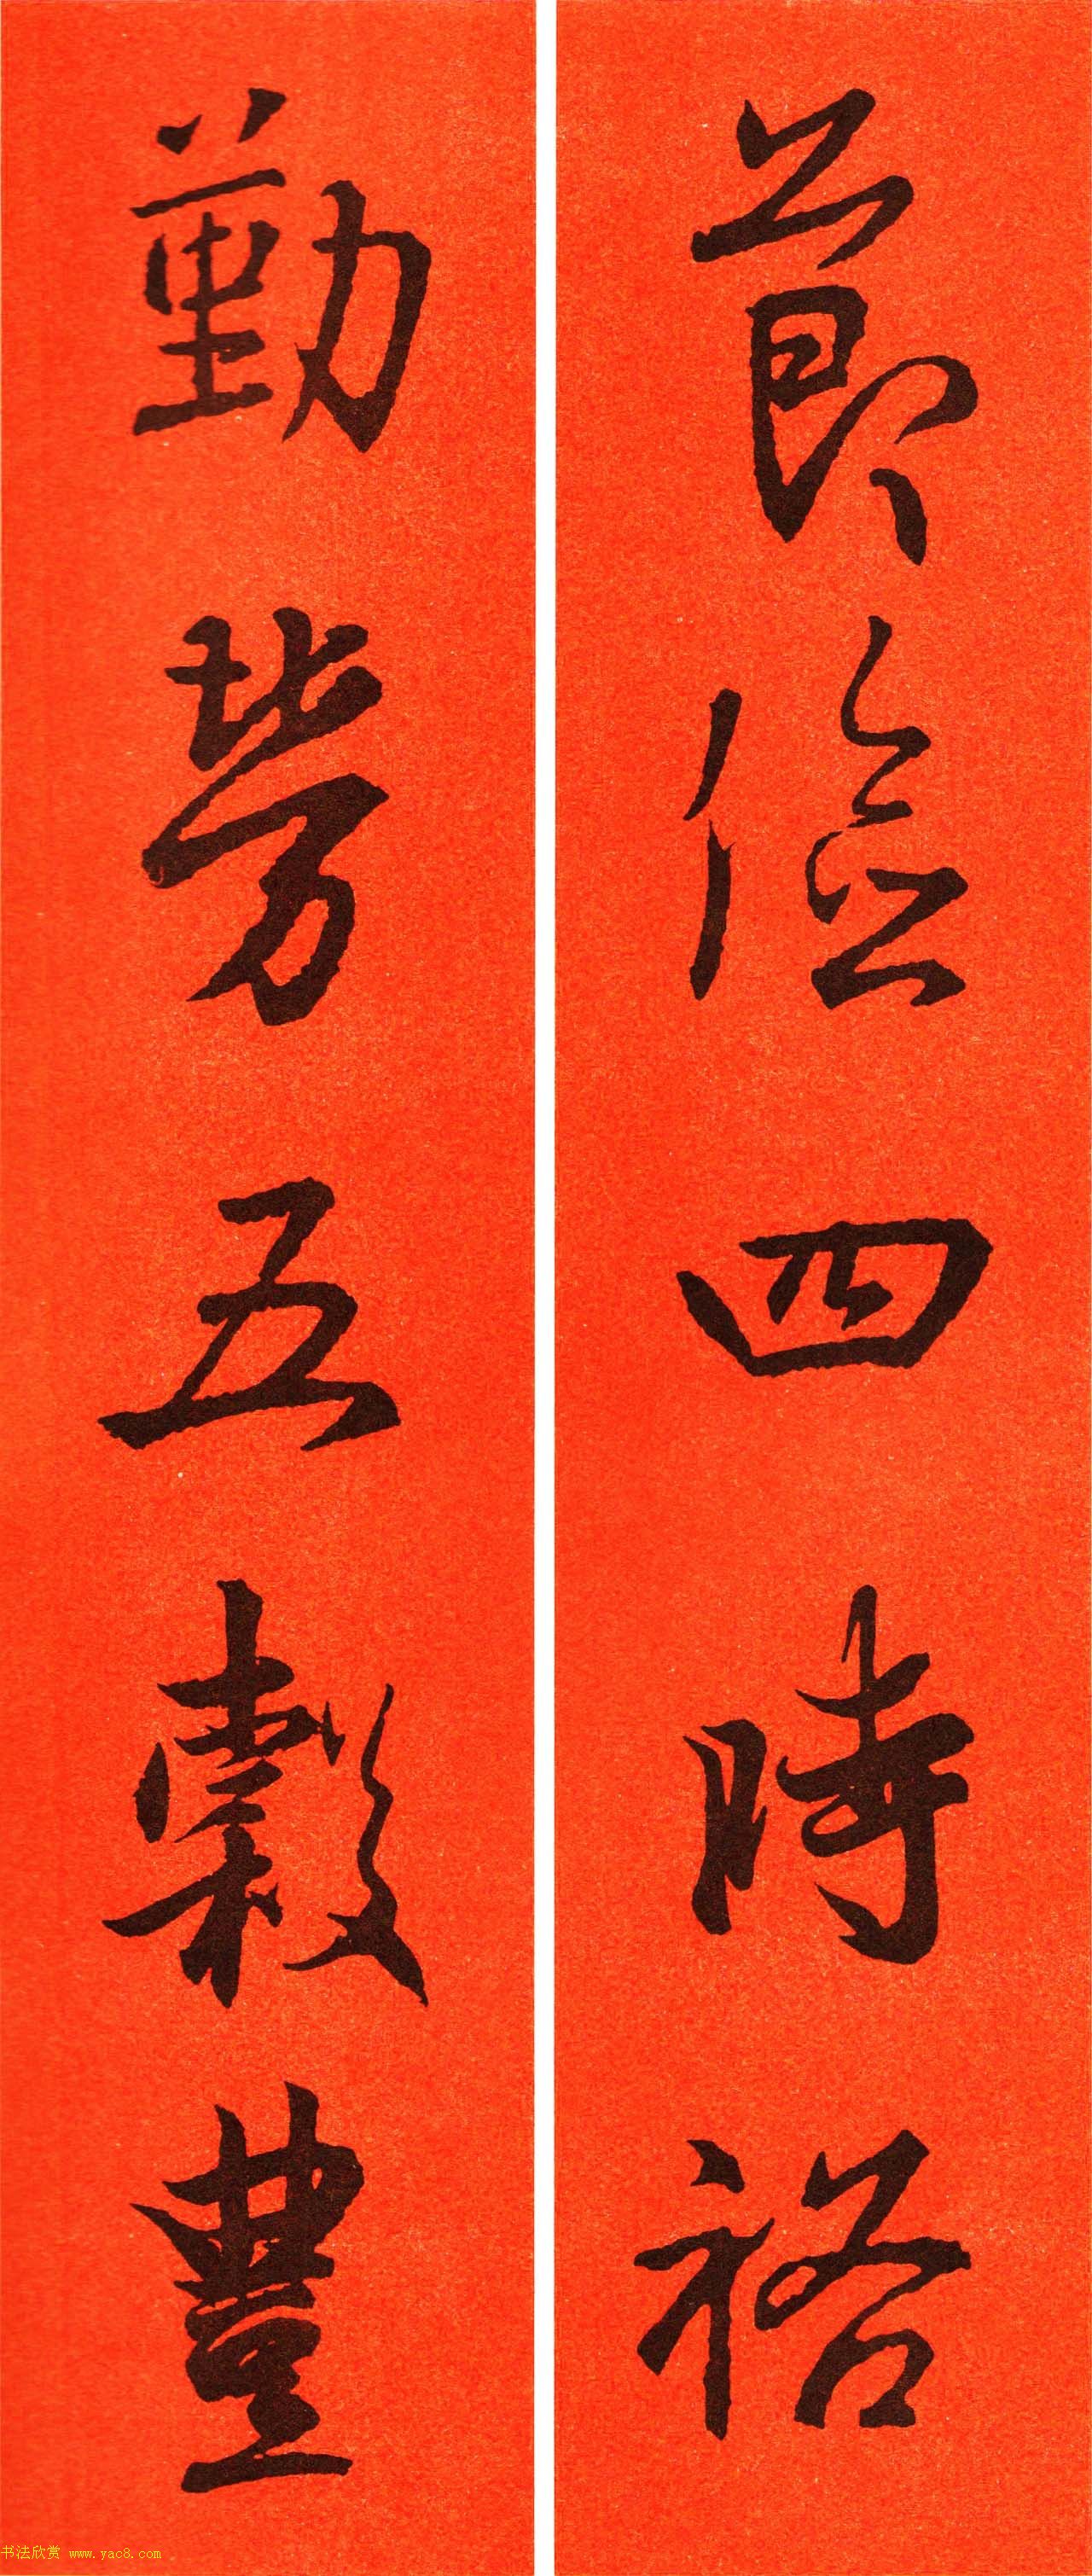 節儉四時裕
勤勞五穀豐
书法欣赏 www.yac8.com